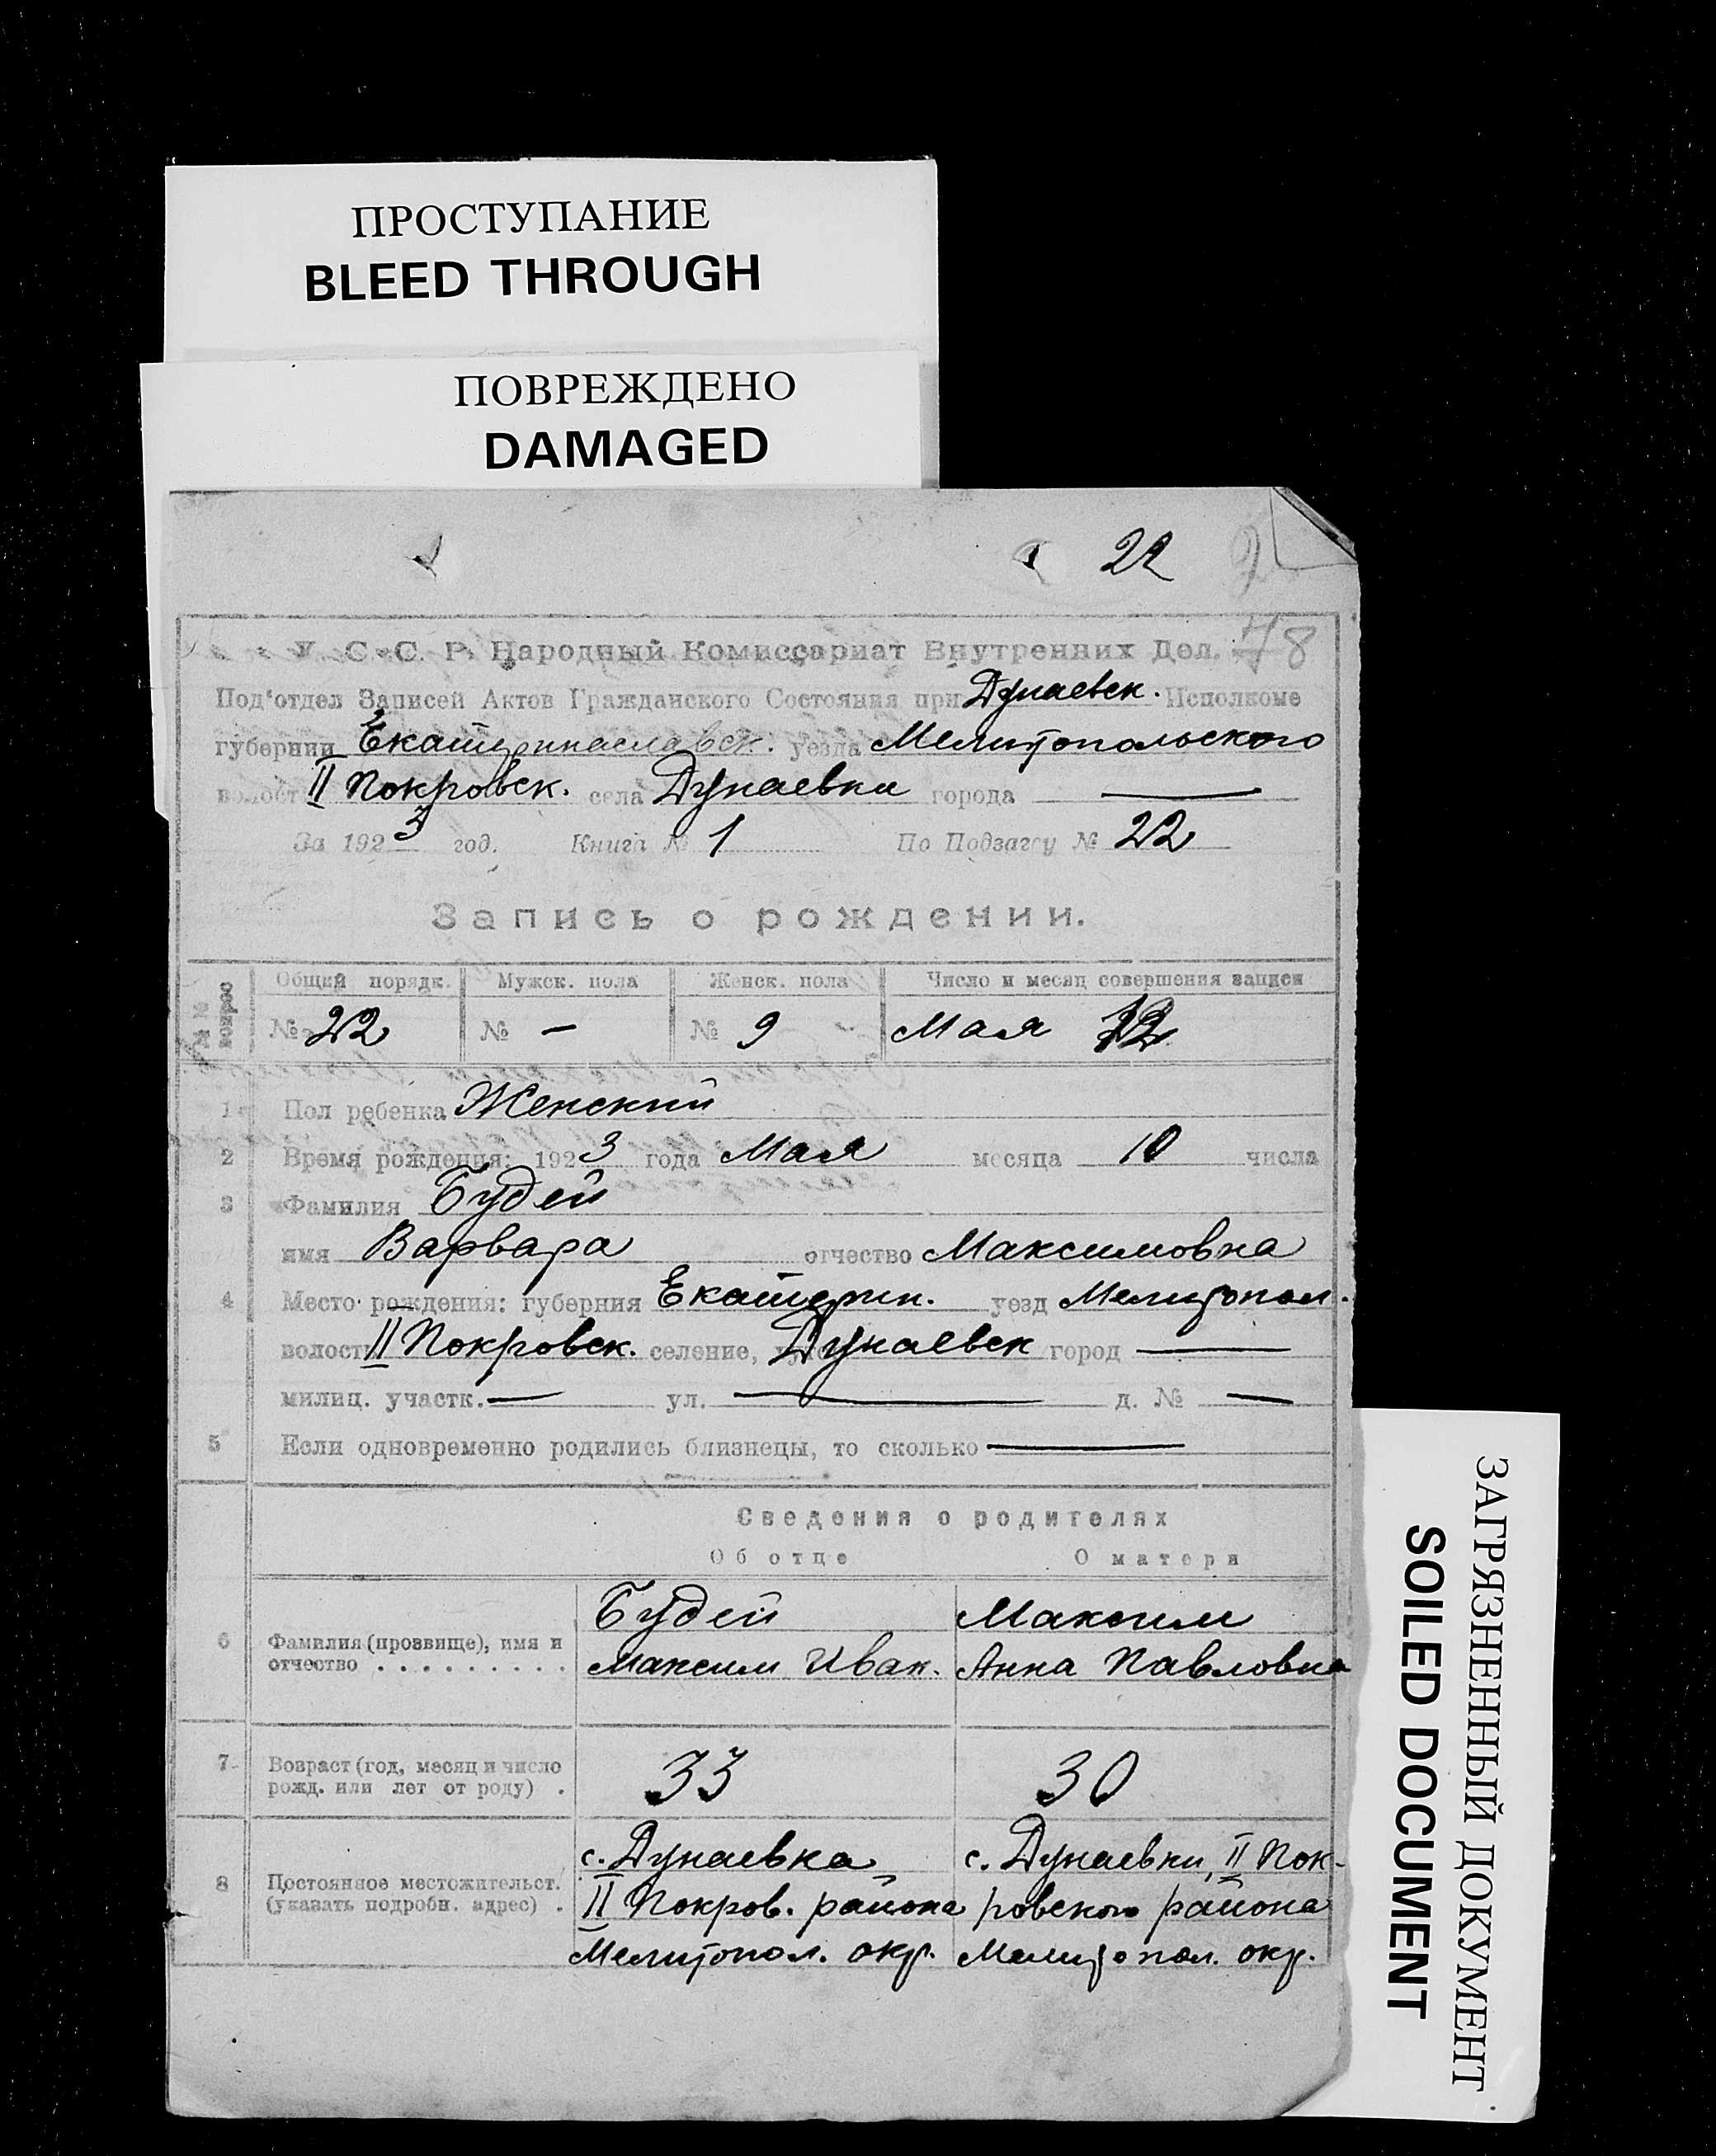 ПРОСТУПАНИЕ
BLEED THROUGH
ПОВРЕЖДЕНО
DAMAGED
22
78
У. С. С. Р. Народный Комиссариат Внутренних Дел.
Под'отдел Записей Актов Гражданского Состояния при Дунаевск. Исполкоме
губернии Екатеринаславск. уезда Мелитопольского
волости II Покровск. села Дунаевки города —
За 1923 год. Книга № 1 По Подзагсу № 22
Запись о рождении.
№№ вопрос
Общий порядк. Мужск. пола Женск. пола Число и месяц совершения записи
№ 22 № — № 9 Мая 12
1 Пол ребенка Женский
2 Время рождения: 1923 года Мая месяца 10 числа
3 Фамилия Будей
имя Варвара отчество Максимовна
4 Место рождения: губерния Екатерин. уезд Мелитопол.
волость II Покровск. селение, Дунаевск город —
милиц. участк. — ул. — д. № —
5 Если одновременно родились близнецы, то сколько —
Сведения о родителях
Об отце О матери
6 Фамилия (прозвище), имя и отчество . . . . . . . . .
Будей
Максим Иван.
Максим
Анна Павловна
7 Возраст (год, месяц и число рожд. или лет от роду) .
33 30
8 Постоянное местожительст. (указать подробн. адрес) .
с. Дунаевка
II Покров. района
Мелитопол. окр.
с. Дунаевки, II Пок-
ровского района
Мелитопол. окр.
ЗАГРЯЗНЕННЫЙ ДОКУМЕНТ
SOILED DOCUMENT